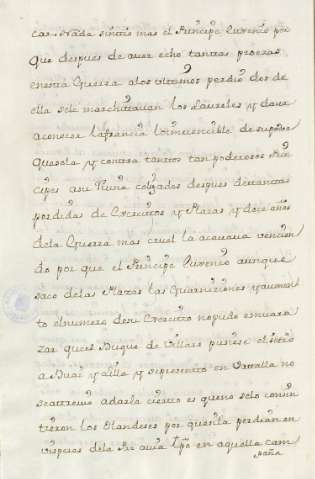 cas. Nada sintió mas el Príncipe Eugenio por
que despues de aver echo tantas proezas
en esta Guerra alos ultimos perdio dos de
ella se le marchitavan los Laureles y dava
aconocer la francia lo imvencible de su poder
que sola y contra tantos tan poderosos
cipes a su Ruina despues de tantas
perdidas de Exercitos y Plazas y doce años
dela Guerra mas cruel la acavava vencien
do por que el Principe Eugenio aunque
saco delas Plazas las Guarniziones y aumen
to el numero de su Exercito no pudo emvara
zar que el Duque de Villars pusiese el sitio
a Duai y y se presento en Vatalla no
se atrevio adarla cierto es que no solo consin
tieron los Olandeses por que en la perdian en
visperas dela Paz avia tpo en aquella cam
paña